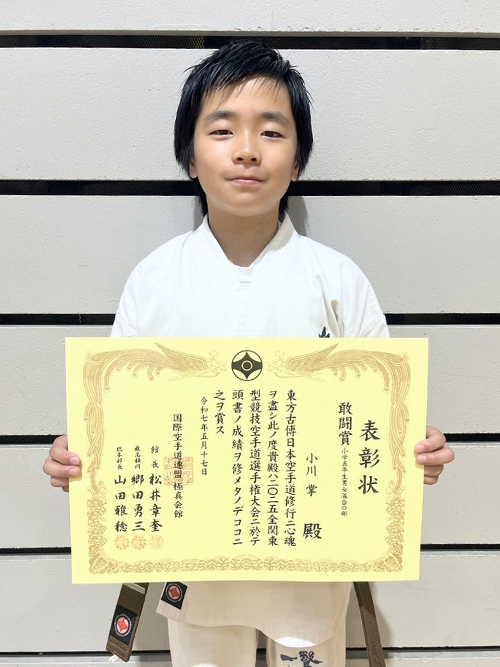 表彰状
敢闘賞 小学五年生男女混合の部
小川 掌 殿
東方古傳日本空手道修行ニ心魂
ヲ盡シ此ノ度貴殿ハ二〇二五全関東
型競技空手道選手権大会ニ於テ
頭書ノ成績ヲ修メタノデココニ
之ヲ賞ス
令和七年五月十七日
国際空手道連盟 極真会館
館長 松井章奎
最高顧問 郷田勇三
総本部長 山田雅稔